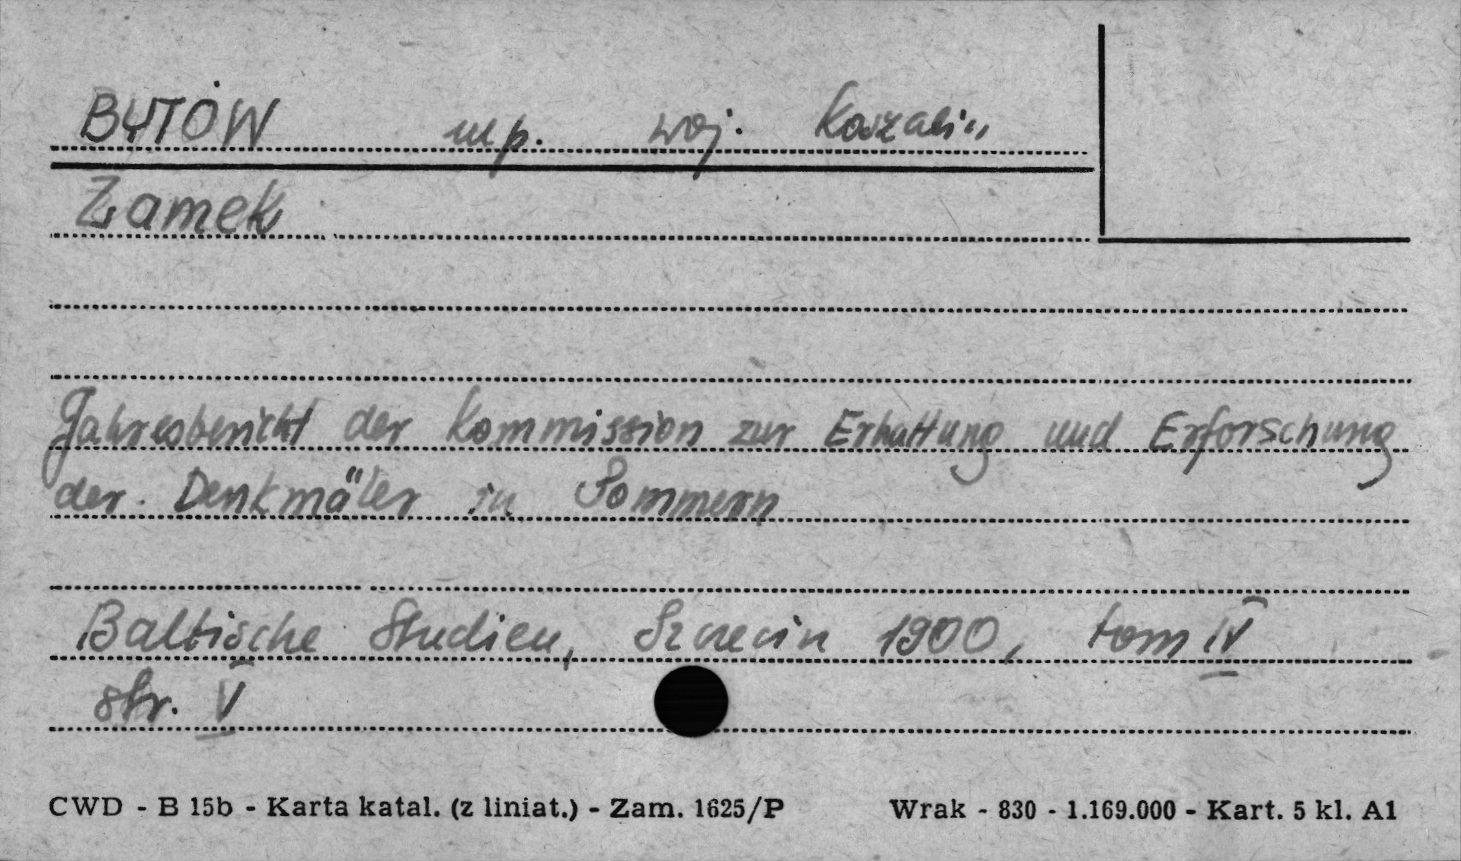 BYTÓW mp. woj. Koszalin
Zamek
Jahresbericht der Kommission zur Erhaltung und Erforschung
der Denkmäler in Pommern
Baltische Studien, Szczecin 1900, tom IV
str. V
CWD - B 15b - Karta katal. (z liniat.) - Zam. 1625/P Wrak - 830 - 1.169.000 - Kart. 5 kl. A1